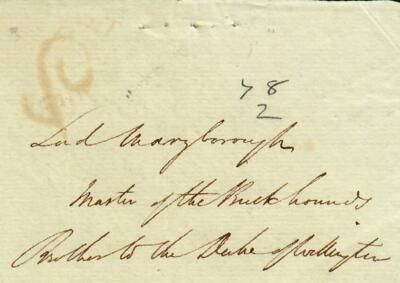 78
2
Lord Maryborough
Master of the Buckhounds
Brother to the Duke of Wellington